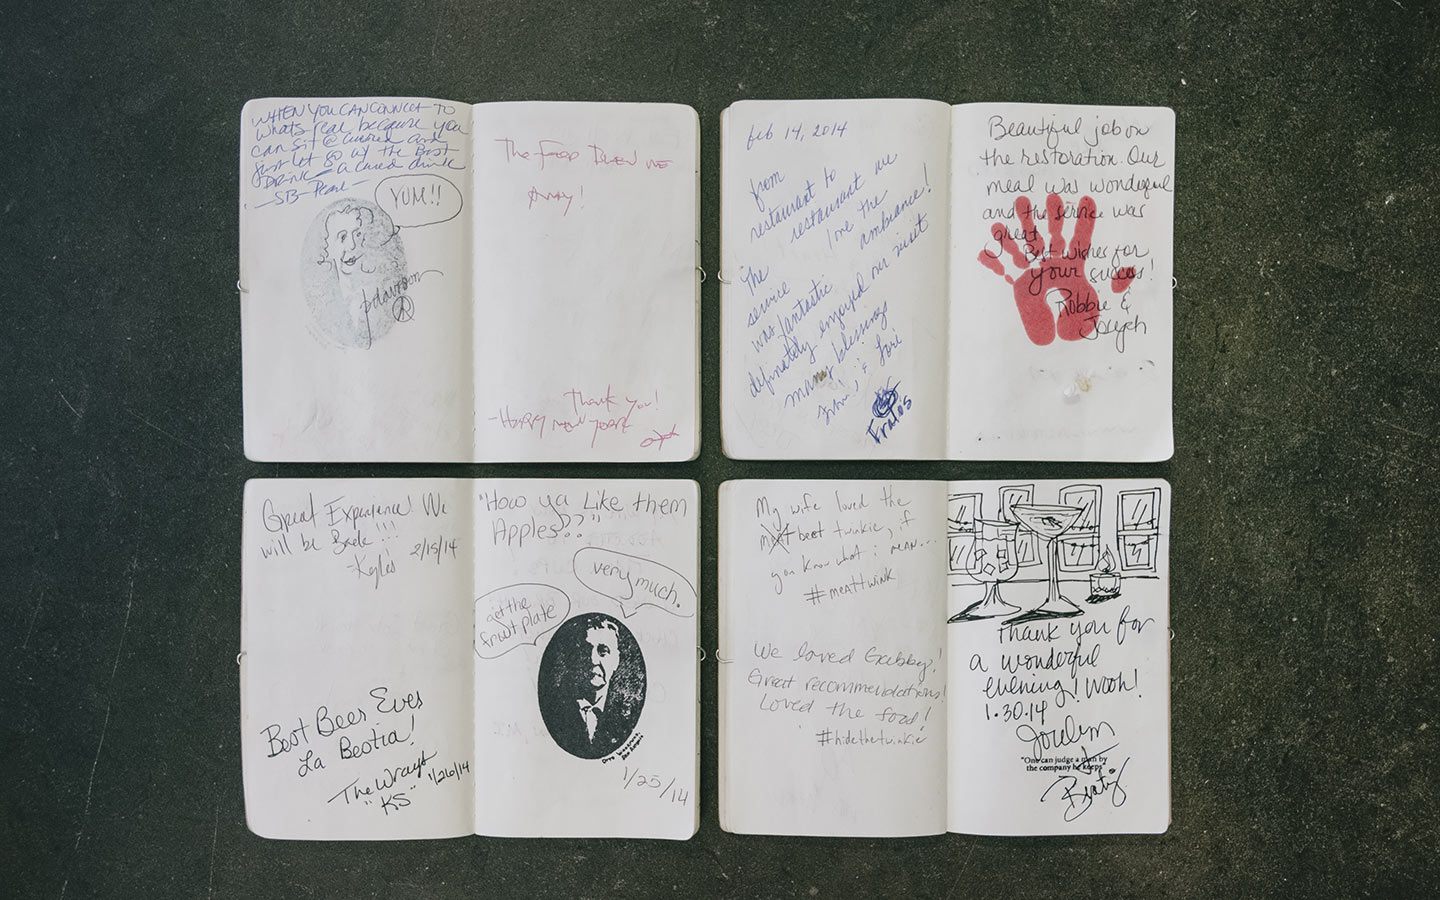 WHEN YOU CAN CONNECT TO
whats real because you
can sit @ 
just let go w/ the Best
DRINK - a cured drink
YUM!!
The Food Blew me
Away!
Thank you!
-Happy New Year
feb 14, 2014
from
restaurant to
restaurant we
love the
ambiance!
The
service
was fantastic
definately enjoyed our visit
many blessings
& Lori
Beautiful job on
the restoration. Our
meal was wonderful
and the service was
great
Best wishes for
your success!
Robbie &
Joseph
Great Experience! We
will be Back!!!
-Kyle's 2/15/14
Best Beer Ever
La Bestia!
The Wrays 1/26/14
"KS"
"How ya Like them
Apples??"
very much.
get the
fruit plate
1/25/14
My wife loved the
beet twinkie, if
you know what i mean...
#meattwink
We loved Gabby!
Great recommendations!
Loved the food!
#hidethetwinkie
Thank you for
a wonderful
evening! Wooh!
1.30.14
Jordyn
+
"One can judge a man by
the company he keeps"